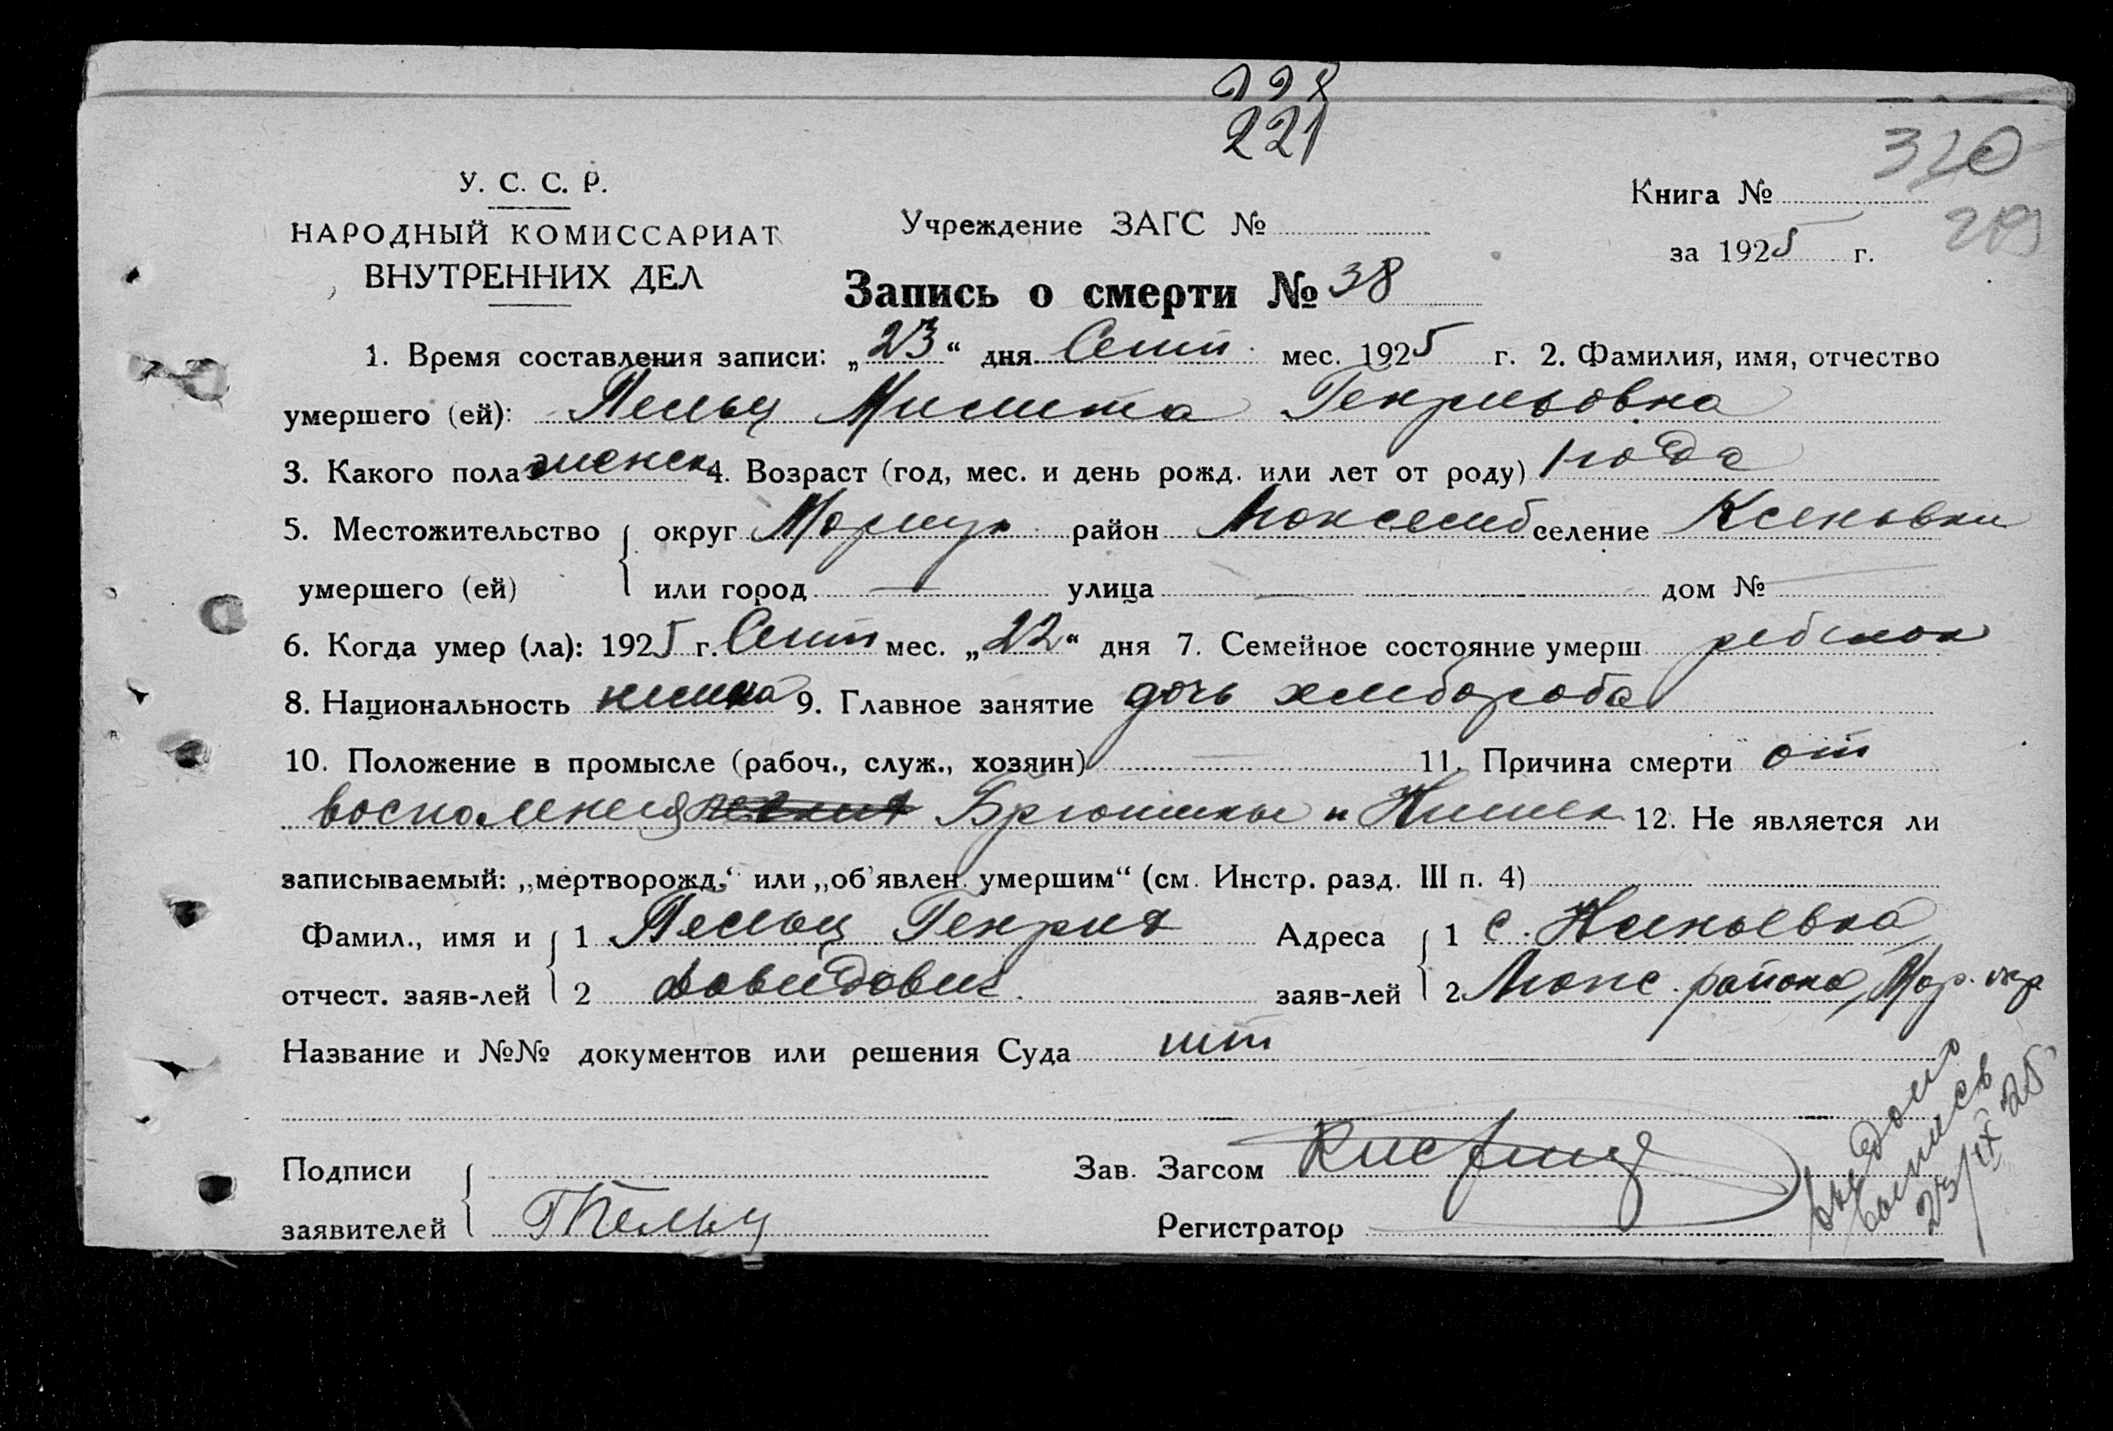 221
320
У. С. С. Р.
НАРОДНЫЙ КОМИССАРИАТ
ВНУТРЕННИХ ДЕЛ
Учреждение ЗАГС №
Книга №
за 1925 г.
Запись о смерти № 38
1. Время составления записи: „23“ дня Сент. мес. 1925 г. 2. Фамилия, имя, отчество
умершего (ей): Пельц Милита Генриховна
3. Какого пола женск 4. Возраст (год, мес. и день рожд. или лет от роду) 1 года
5. Местожительство округ Мариуп. район Люксемб селение Ксеньевки
умершего (ей) или город — улица — дом №
6. Когда умер (ла): 1925 г. Сент мес. „22“ дня 7. Семейное состояние умерш ребенок
8. Национальность немка 9. Главное занятие дочь хлебороба
10. Положение в промысле (рабоч., служ., хозяин) — 11. Причина смерти от
воспаления Брюшины и Кишек 12. Не является ли
записываемый: „мертворожд.“ или „об'явлен. умершим“ (см. Инстр. разд. III п. 4)
Фамил., имя и 1 Пельц Генрих Адреса 1 с. Ксеньевка
отчест. заяв-лей 2 Давидович. заяв-лей 2 Люкс. района, Мар. окр
Название и №№ документов или решения Суда нет
Подписи Зав. Загсом
заявителей ГПельц Регистратор
23/IX 25